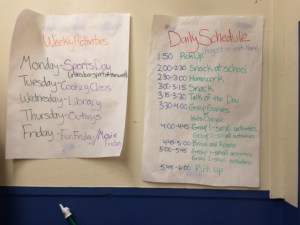 Weekly Activities
Monday-Sports Day
Tuesday-Cooking Class
Wednesday-Library
Thursday-Outings
Friday-Fun Friday/Movie
Friday
Daily Schedule
1:50 Pick Up
2:00-2:30 Snack at school
2:30-3:00 Homework
3:00-3:15 Snack
3:15-3:30 Talk of the Day
3:30-4:00 Group Games
4:00-4:45 Group 1-small activities
Group 2-small activities
4:45-5:00
5:00-5:45 Group 1-small activities
Group 2-small activities
5:45-6:00 Pick up